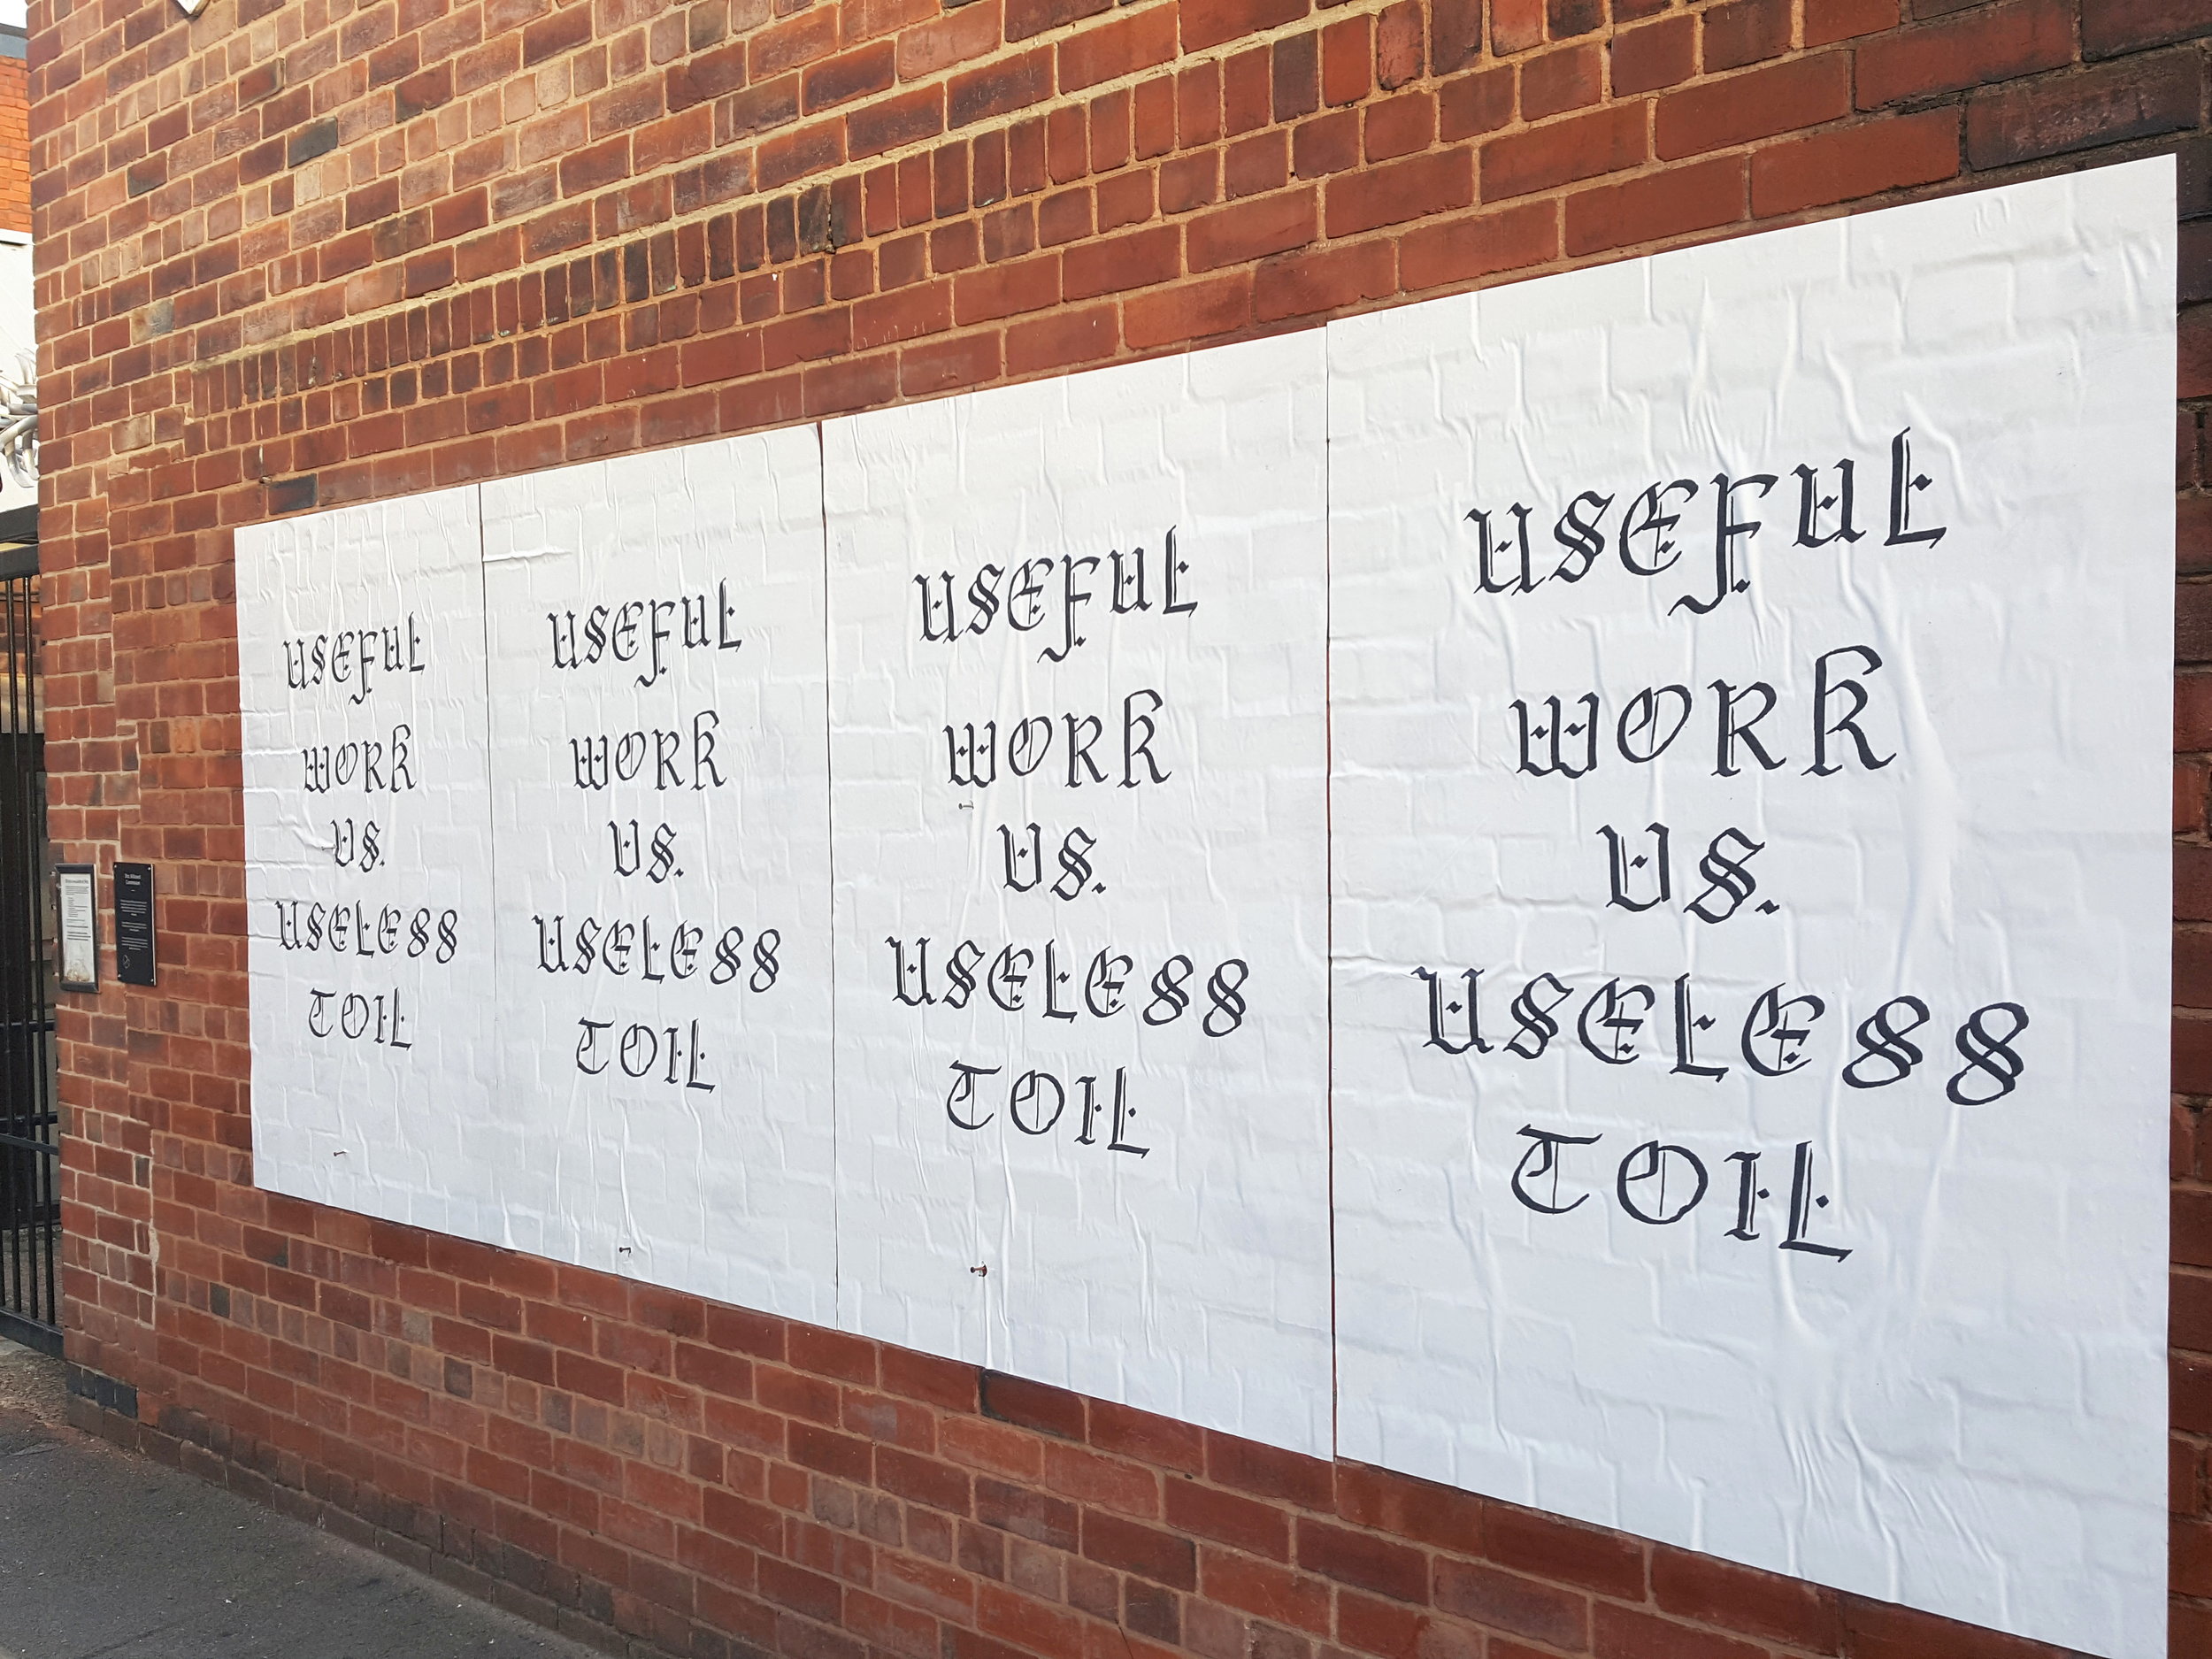 USEFUL
WORK
US.
USELESS
TOIL
USEFUL
WORK
US.
USELESS
TOIL
USEFUL
WORK
US.
USELESS
TOIL
USEFUL
WORK
US.
USELESS
TOIL